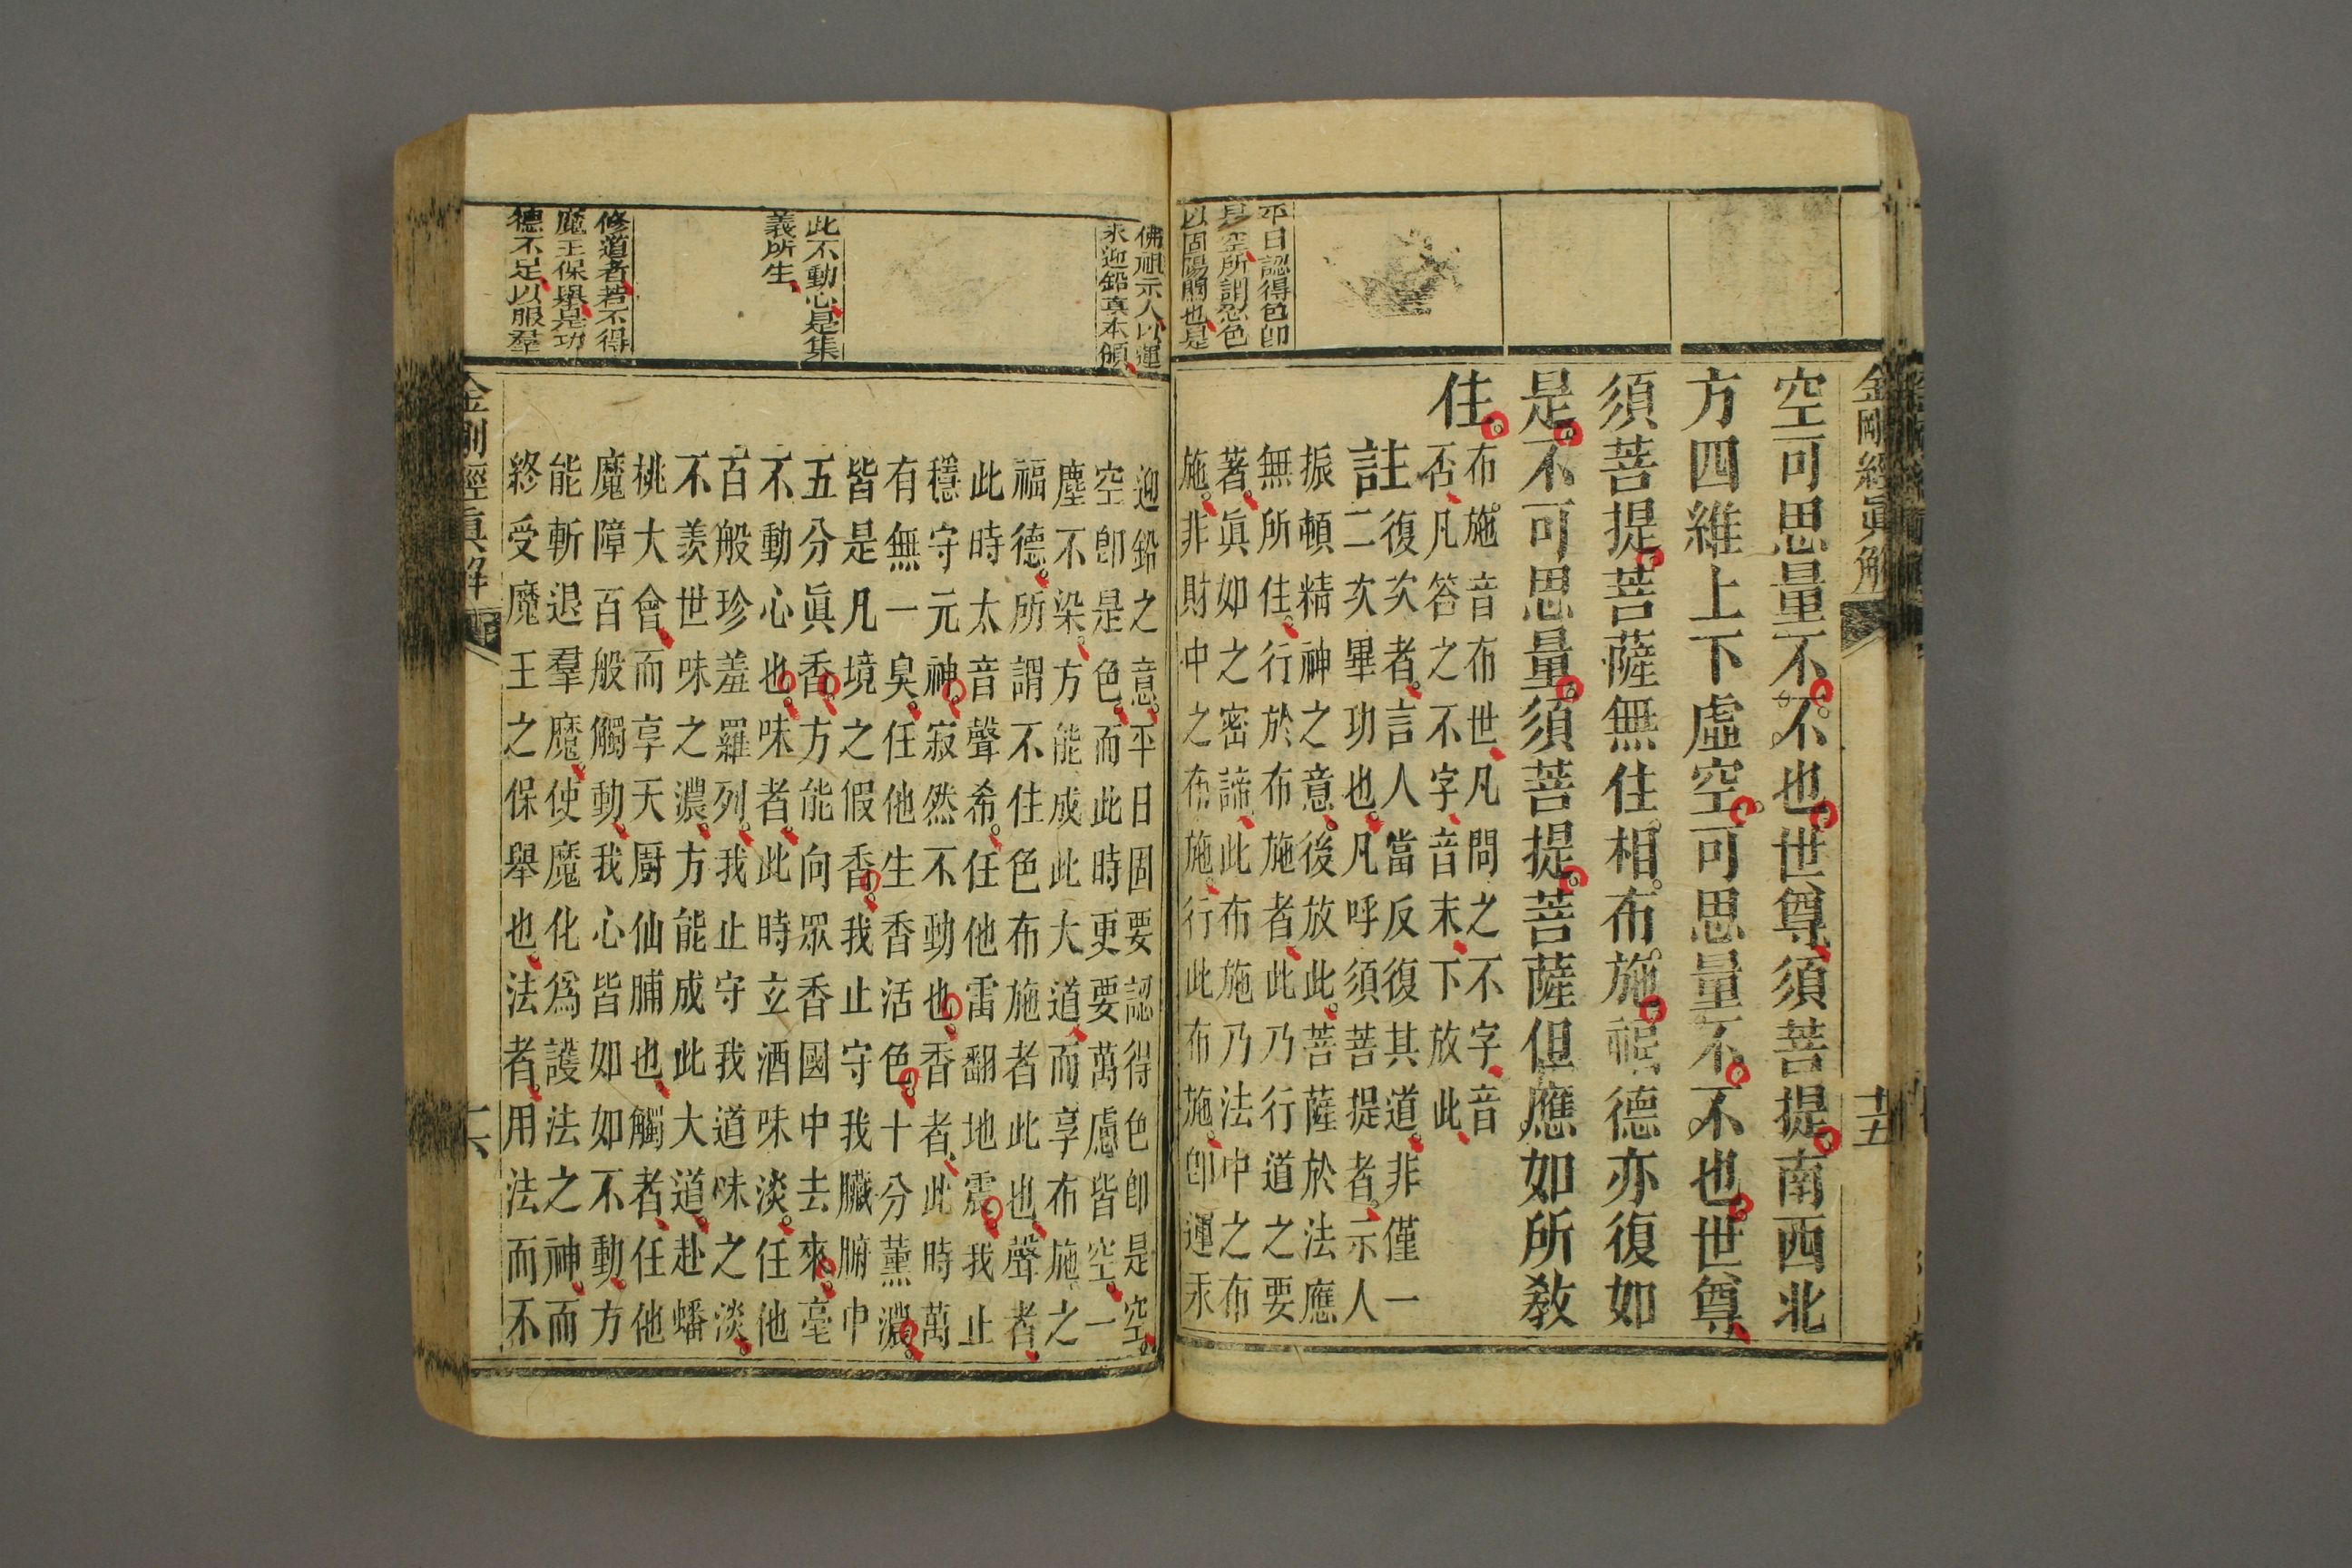 金剛經眞解
十五
空可思量不不也世尊須菩提南西北
方四維上下虛空可思量不不也世尊
須菩提菩薩無住相布施福德亦復如
是不可思量須菩提菩薩但應如所敎
住
布施音布世凡問之不字音
否凡答之不字音末下放此
註復次者言人當反復其道非僅一
二次畢功也凡呼須菩提者示人
振頓精神之意後放此菩薩於法應
無所住行於布施者此乃行道之要
著眞如之密諦此布施乃法中之布
施非財中之布施行此布施卽運汞
平日認得色卽
是空所謂忍色
以固陽關也是
佛祖示人以運
汞迎鉛眞本領
迎鉛之意平日固要認得色卽是空
空卽是色而此時更要萬慮皆空一
塵不染方能成此大道而享布施之
福德所謂不住色布施者此也聲者
此時太音聲希任他雷翻地震我止
穩守元神寂然不動也香者此時萬
有無一臭任他生香活色十分薰濃
皆是凡境之假香我止守我臟腑中
五分眞香方能向眾香國中去來毫
不動心也味者此時立酒味淡任他
百般珍羞羅列我止守我道味之淡
不羨世味之濃方能成此大道赴蟠
桃大會而享天厨仙脯也觸者任他
魔障百般觸動我心皆如如不動方
能斬退羣魔使魔化爲護法之神而
終受魔王之保舉也法者用法而不
此不動心是集
義所生
修道者若不得
魔王保舉是功
德不足以服羣
金剛經眞解
十六